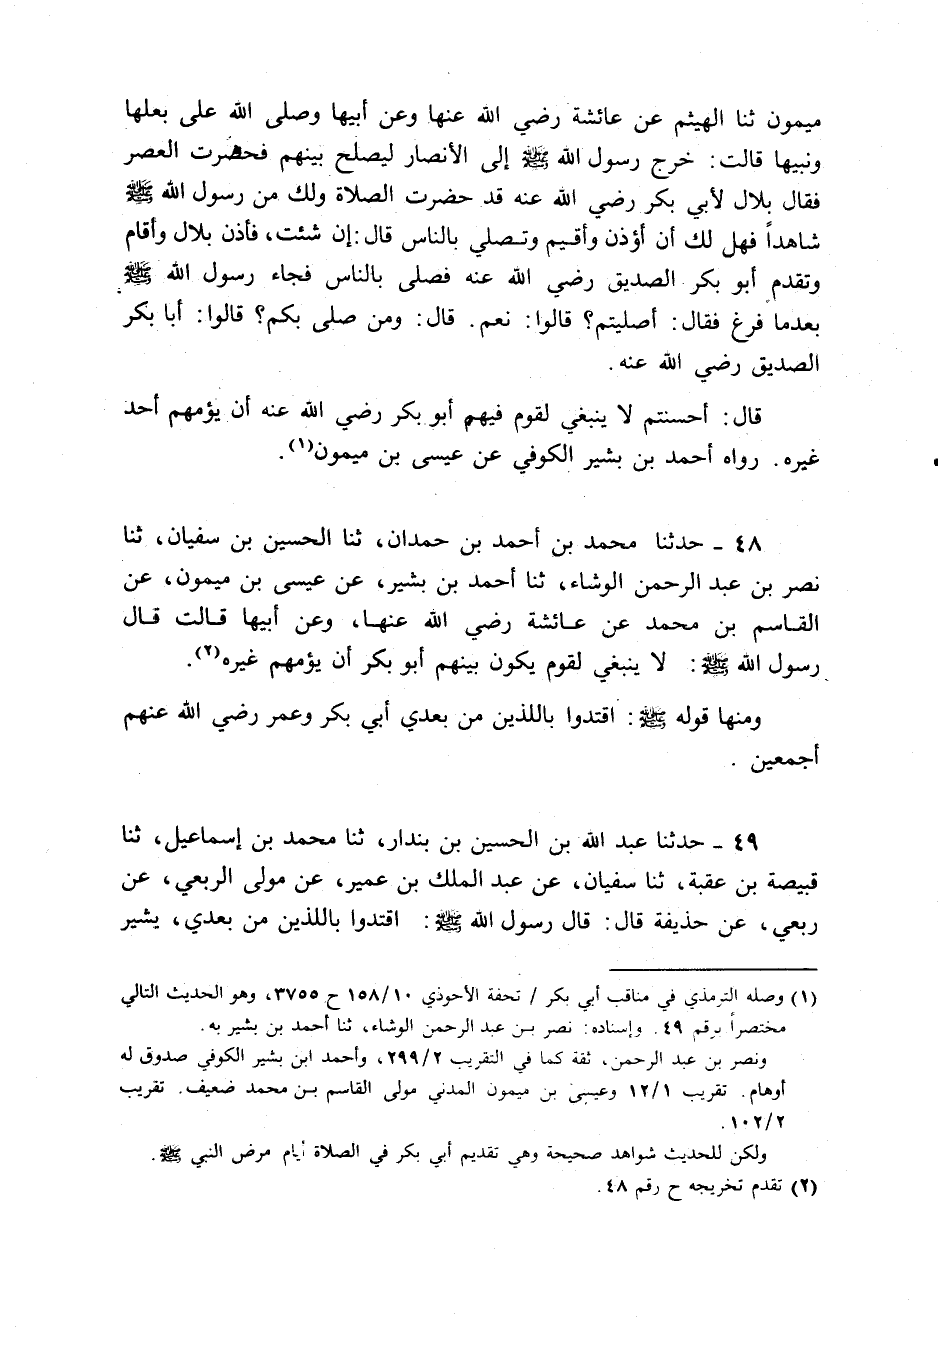 ميمون ثنا الهيثم عن عائشة رضي الله عنها وعن أبيها وصلى الله على بعلها
ونبيها قالت: خرج رسول الله ﷺ إلى الأنصار ليصلح بينهم فحضرت العصر
فقال بلال لأبي بكر رضي الله عنه قد حضرت الصلاة ولك من رسول الله ﷺ
شاهداً فهل لك أن أؤذن وأقيم وتصلي بالناس قال: إن شئت، فأذن بلال وأقام
وتقدم أبو بكر الصديق رضي الله عنه فصلى بالناس فجاء رسول الله ﷺ
بعدما فرغ فقال: أصليتم؟ قالوا: نعم. قال: ومن صلى بكم؟ قالوا: أبا بكر
الصديق رضي الله عنه.
قال: أحسنتم لا ينبغي لقوم فيهم أبو بكر رضي الله عنه أن يؤمهم أحد
غيره. رواه أحمد بن بشير الكوفي عن عيسى بن ميمون(١).
٤٨ ـ حدثنا محمد بن أحمد بن حمدان، ثنا الحسين بن سفيان، ثنا
نصر بن عبد الرحمن الوشاء، ثنا أحمد بن بشير، عن عيسى بن ميمون، عن
القاسم بن محمد عن عائشة رضي الله عنها، وعن أبيها قالت قال
رسول الله ﷺ: لا ينبغي لقوم يكون بينهم أبو بكر أن يؤمهم غيره(٢).
ومنها قوله ﷺ: اقتدوا باللذين من بعدي أبي بكر وعمر رضي الله عنهم
أجمعين.
٤٩ ـ حدثنا عبد الله بن الحسين بن بندار، ثنا محمد بن إسماعيل، ثنا
قبيصة بن عقبة، ثنا سفيان، عن عبد الملك بن عمير، عن مولى الربعي، عن
ربعي، عن حذيفة قال: قال رسول الله ﷺ: اقتدوا باللذين من بعدي، يشير
(١) وصله الترمذي في مناقب أبي بكر / تحفة الأحوذي ١٥٨/١٠ ح ٣٧٥٥، وهو الحديث التالي
مختصراً برقم ٤٩. وإسناده: نصر بن عبد الرحمن الوشاء، ثنا أحمد بن بشير به.
ونصر بن عبد الرحمن، ثقة كما في التقريب ٢٩٩/٢، وأحمد ابن بشير الكوفي صدوق له
أوهام. تقريب ١٢/١ وعيسى بن ميمون المدني مولى القاسم بن محمد ضعيف. تقريب
١٠٢/٢.
ولكن للحديث شواهد صحيحة وهي تقديم أبي بكر في الصلاة أيام مرض النبي ﷺ.
(٢) تقدم تخريجه ح رقم ٤٨.